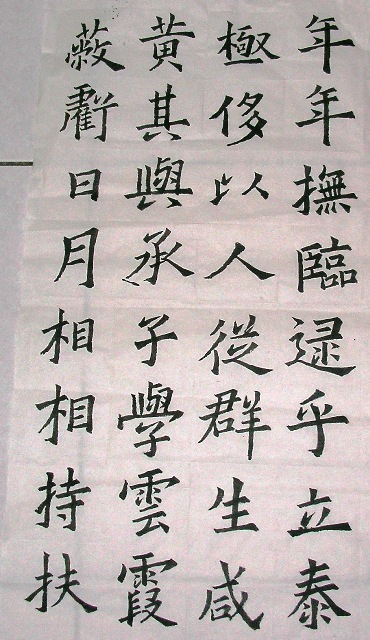 年年撫臨逮乎立泰
極侈以人從群生咸
黃其與承子學雲霞
蔽虧日月相相持扶